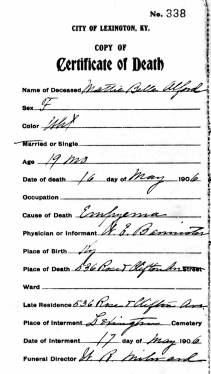 No. 338
CITY OF LEXINGTON, KY.
COPY OF
Certificate of Death
Name of Deceased Mattie Belle Alford
Sex F
Color Wht
Married or Single
Age 19 Mo
Date of death 16 day of May 1906
Occupation
Cause of Death Empyema
Physician or Informant W. E. Bannister
Place of Birth Ky
Place of Death 536 Rose & Clifton Av Street
Ward
Late Residence 536 Rose & Clifton Ave
Place of Interment Lexington Cemetery
Date of Interment 17 day of May 1906
Funeral Director W. R. Milward